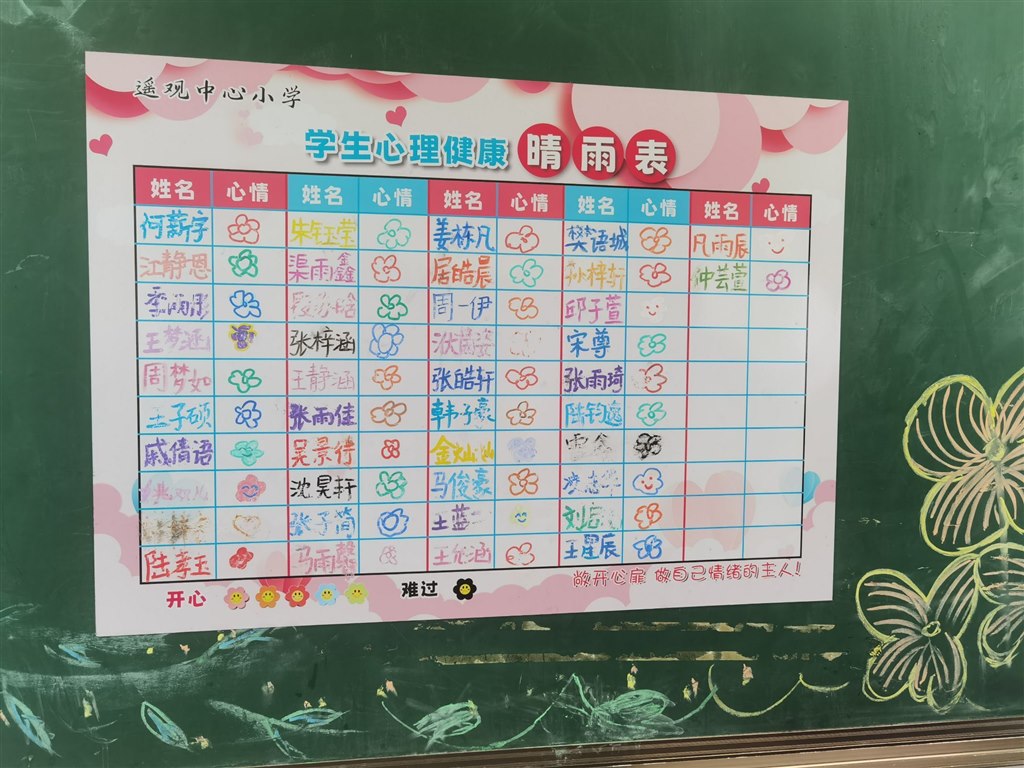 遥观中心小学
学生心理健康 晴雨表
姓名 心情 姓名 心情 姓名 心情 姓名 心情 姓名 心情
何薪宇 朱钰莹 姜栋凡 樊语城 凡雨辰
江静恩 渠雨鑫 居皓晨 孙梓轩 仲芸萱
季雨彤 周一伊 邱子萱
王梦涵 张梓涵 宋尊
周梦如 王静涵 张皓轩 张雨琦
王子硕 张雨佳 韩子豪 陆钧逸
戚倩语 吴景行 金灿灿 雷鑫
沈昊轩 马俊豪
张子简 王蓝 刘
陆孝玉 马雨馨 王 涵 王星辰
开心 难过 敞开心扉 做自己情绪的主人!